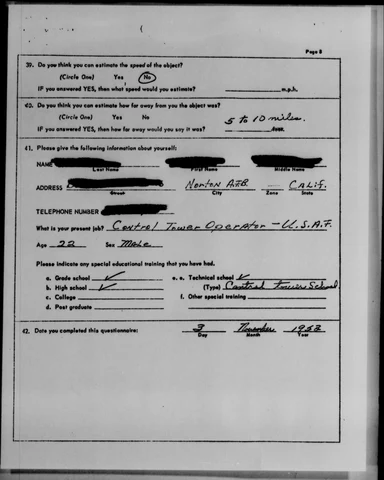 Page 8
39. Do you think you can estimate the speed of the object?
(Circle One) Yes No
IF you answered YES, then what speed would you estimate? m.p.h.
40. Do you think you can estimate how far away from you the object was?
(Circle One) Yes No
5 to 10 miles.
IF you answered YES, then how far away would you say it was?
41. Please give the following information about yourself:
NAME
Last Name First Name Middle Name
ADDRESS Norton AFB. - CALIF.
Street City Zone State
TELEPHONE NUMBER
What is your present job? Control Tower Operator - U.S.A.F.
Age 22 Sex Male
Please indicate any special educational training that you have had.
a. Grade school ✓ e. Technical school ✓
b. High school ✓ (Type) Control Tower School
c. College f. Other special training
d. Post graduate
42. Date you completed this questionnaire: 3 November 1953
Day Month Year